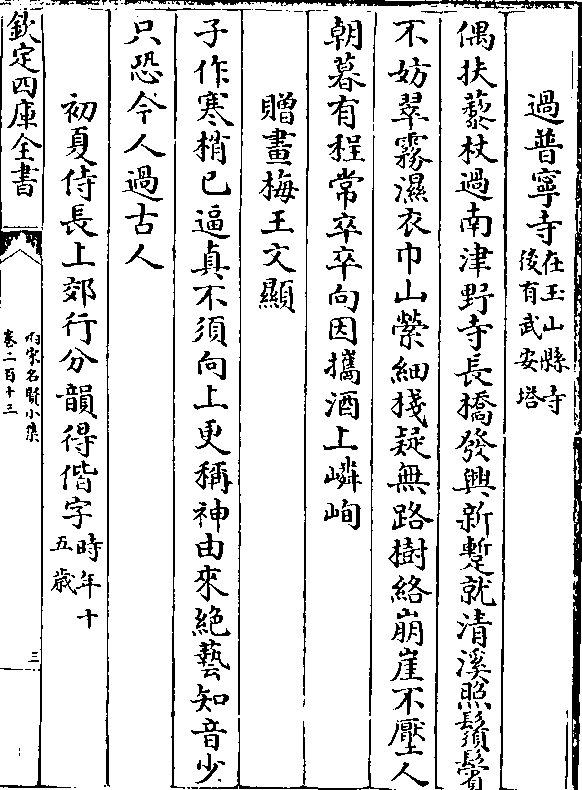 過普寧寺在玉山縣寺後有武安塔
偶扶藜杖過南津野寺長橋發興新蹔就清溪照鬚鬢
不妨翠霧濕衣巾山縈細棧疑無路樹絡崩崖不壓人
朝暮有程常卒卒向因攜酒上嶙峋
贈畫梅王文顯
子作寒梢已逼真不須向上更稱神由來絶藝知音少
只恐今人過古人
初夏侍長上郊行分韻得偕字時年十五歲
欽定四庫全書
兩宋名賢小集
卷二百十三
三